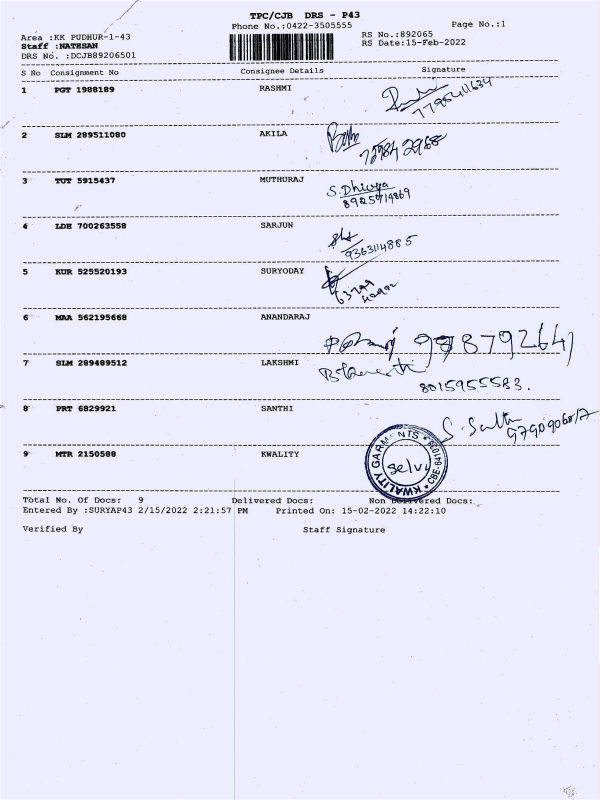 TPC/CJB DRS - P43
Phone No.:0422-3505555
Page No.:1
Area :KK PUDHUR-1-43
RS No.:892065
Staff :NATESAN
RS Date:15-Feb-2022
DRS No. :DCJB89206501
S No Consignment No Consignee Details Signature
1 PGT 1988189 RASHMI
7795411634
2 SLM 289511080 AKILA
3 TUT 5915437 MUTHURAJ S.Dhivya
8925714869
4 LDH 700263558 SARJUN
9363114885
5 KUR 525520193 SURYODAY
6 MAA 562195668 ANANDARAJ
7 SLM 289489512 LAKSHMI
8015955583.
8 PRT 6829921 SANTHI
9 MTR 2150588 KWALITY
KWALITY GARMENTS
Selvi
Total No. Of Docs: 9 Delivered Docs: Non Delivered Docs:
Entered By :SURYAP43 2/15/2022 2:21:57 PM Printed On: 15-02-2022 14:22:10
Verified By Staff Signature